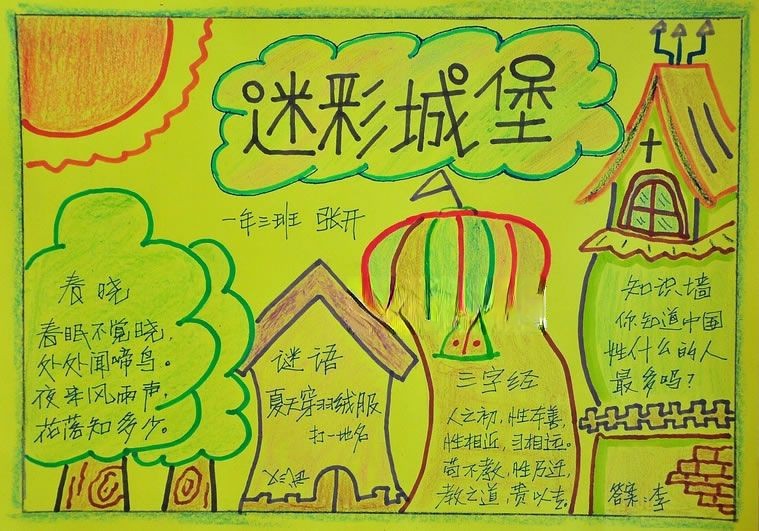 迷彩城堡
一年三班 张开
春晓
春眠不觉晓,
处处闻啼鸟。
夜来风雨声,
花落知多少。
谜语
夏天穿羽绒服
打一地名
武汉
三字经
人之初,性本善,
性相近,习相远。
苟不教,性乃迁,
教之道,贵以专。
知识墙
你知道中国
姓什么的人
最多吗?
答案:李